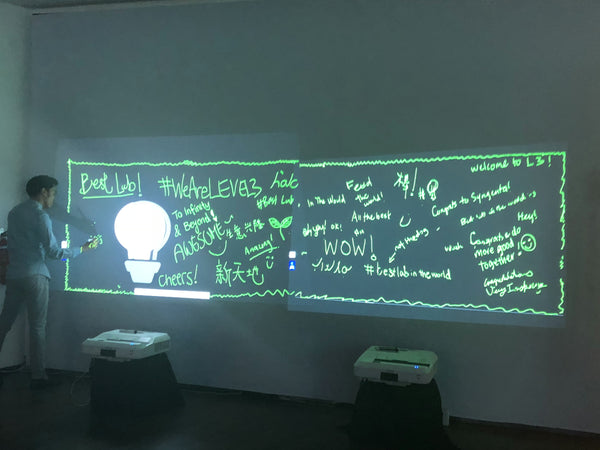 Best Lab!
#WeAreLEVEL3
To Infinity
& Beyond
AWESOME
生意兴隆
#Best Lab
Amazing!
cheers!
新天地
welcome to L3!
In The World
Feed
the
world!
All the best
oh yes!
WOW!
#bestlab in the world
Congrats to Syngenta!
in the world is
Hey!
Congrats &
do
more good
together
Congratulations